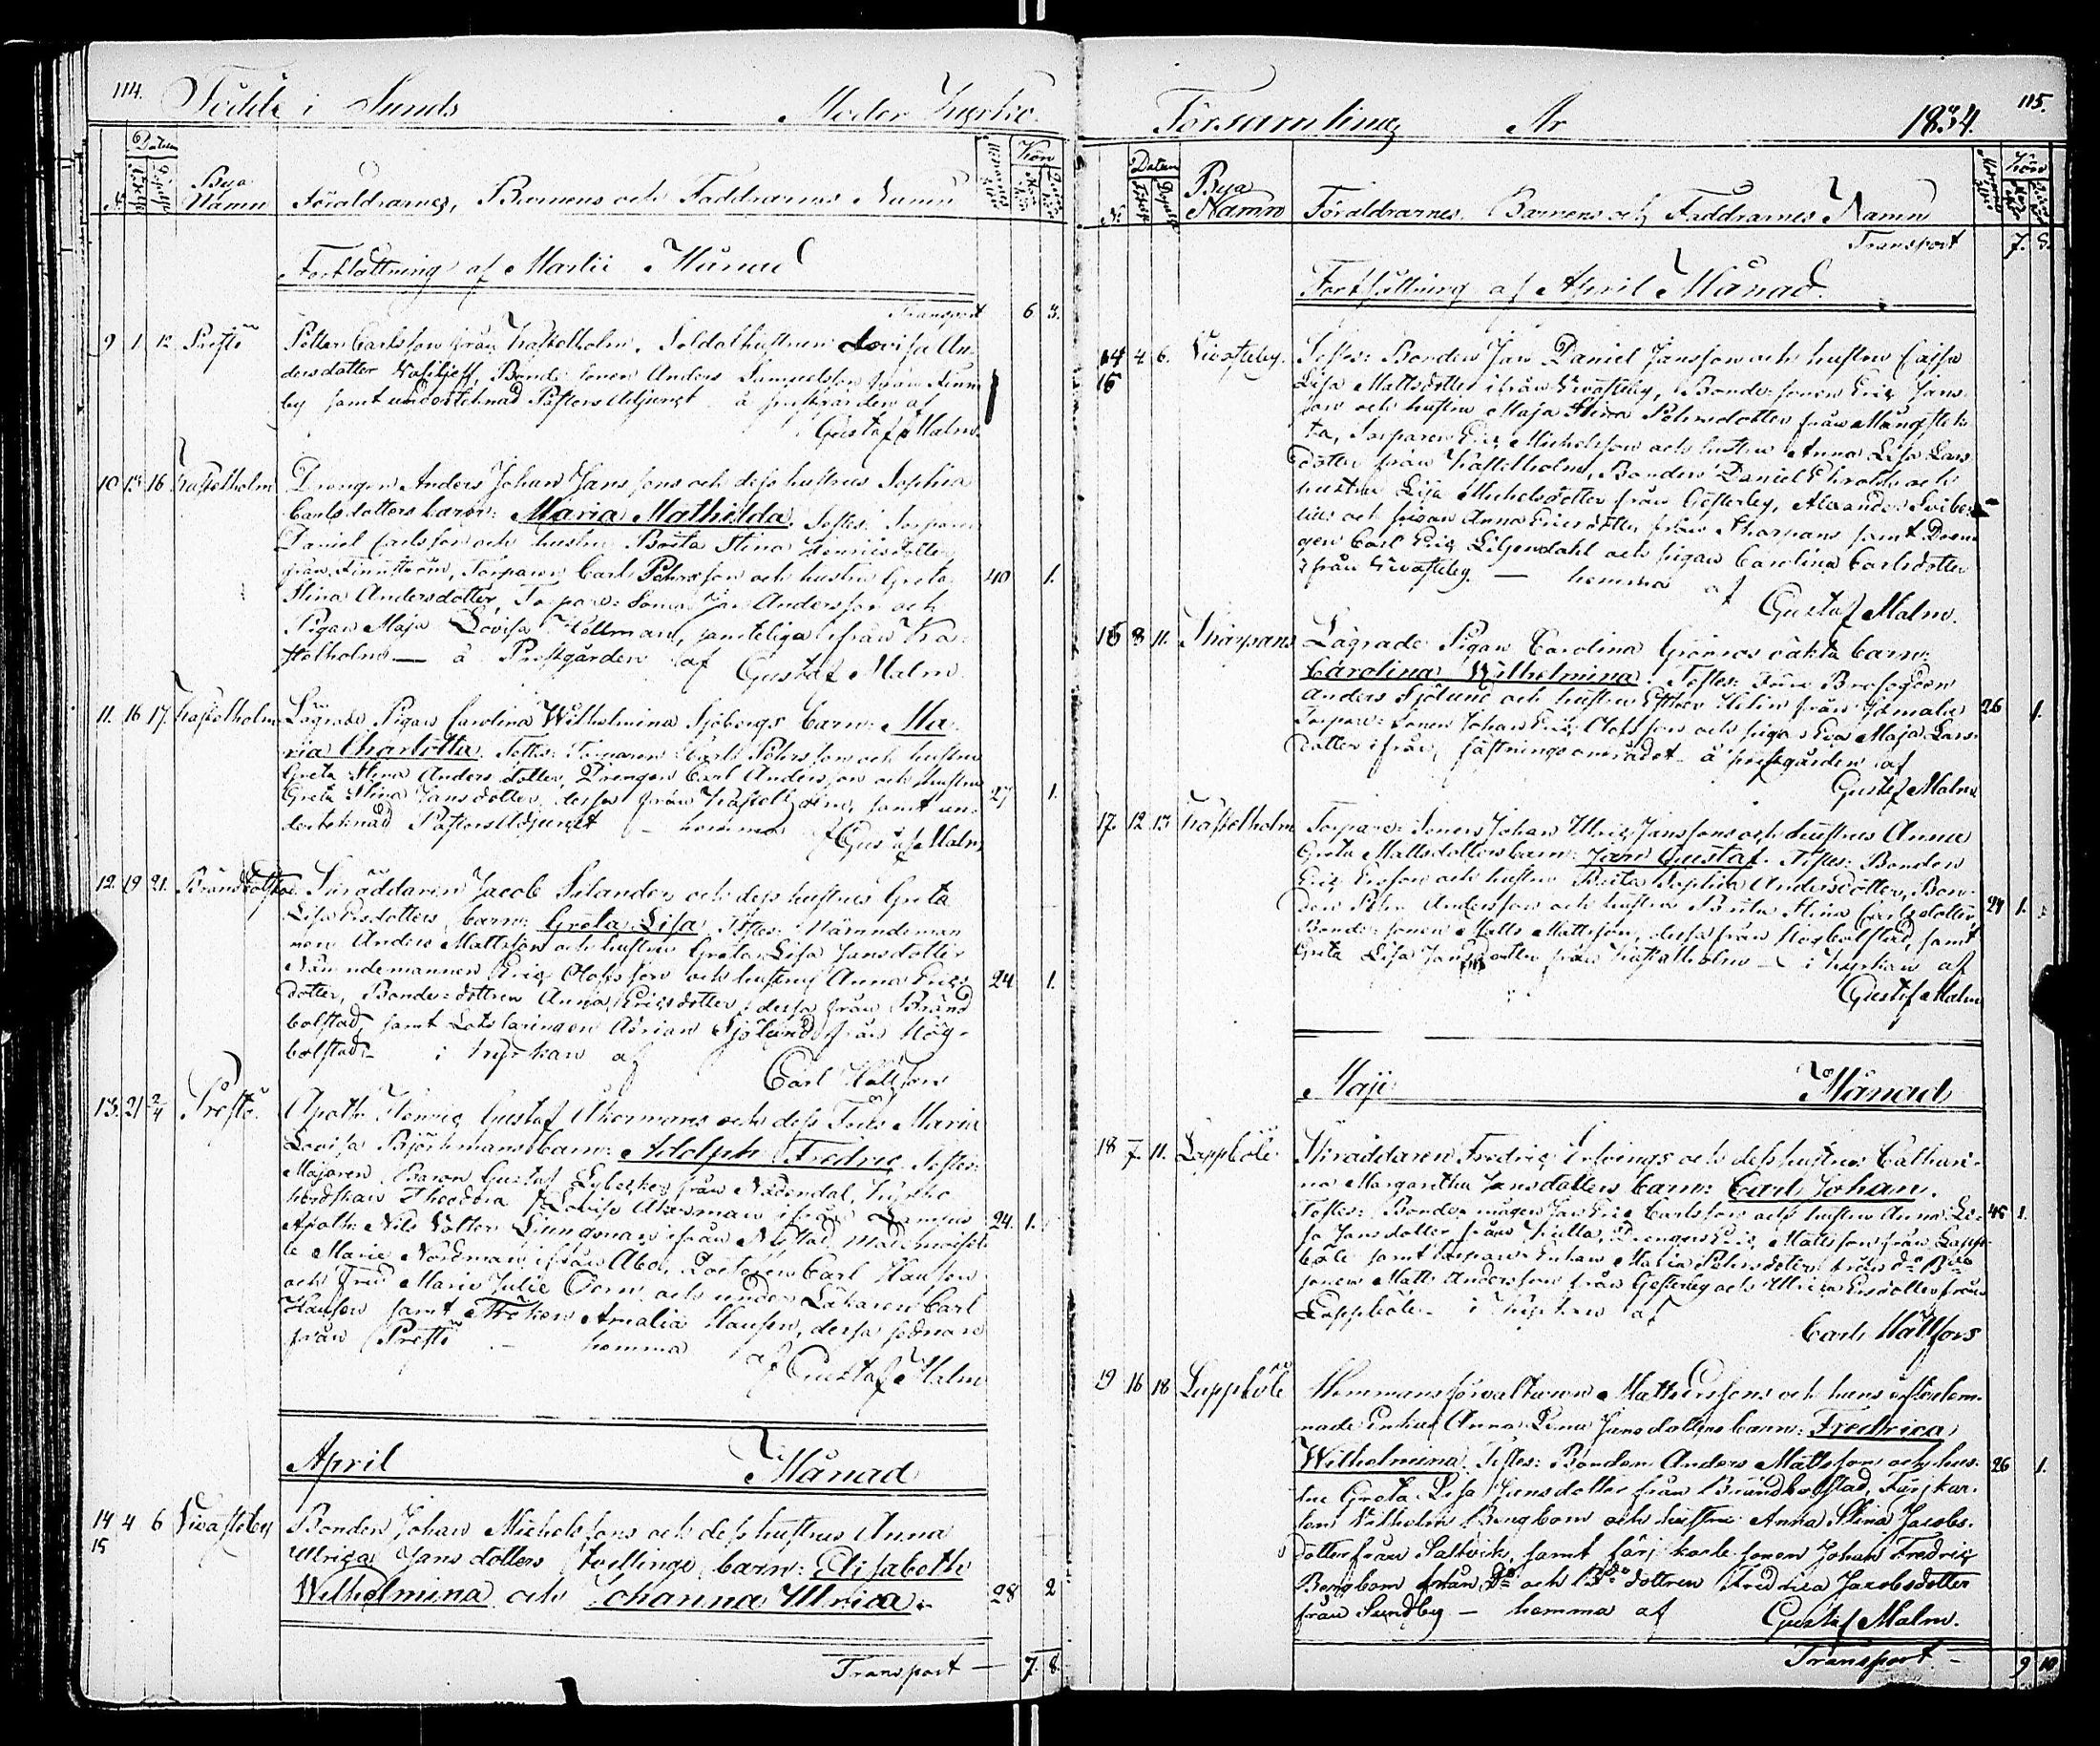 114.
Födde i Sunds Moder Kyrko
No Datum Födelse Döpelse Bya Namn Föräldrarnes, Barnens och Faddrarnes Namn Mödrarnes ålder Kön
Fortsättning af Martii Månad
Transport 6 3.
9 1 12 Prestö Petter Carlsson från Kastelholm, Soldathustrun Lovisa An-
dersdotter Wasiljeff, Bonde sonen Anders Samuelsson från Finn-
by samt undertecknad Pastors Adjunct å prestgården af
Gustaf Malm.
10 15 16 Kastelholm Drengen Anders Johan Janssons och dess hustrus Sophia
Carlsdotters barn: Maria Mathilda. Testes: Torparen
Daniel Carlsson och hustru Brita Stina Henricsdotter
från Finnström, Torparen Carl Pehrsson och hustru Greta 40 1.
Stina Andersdotter, Torpare-Sonen Jan Andersson och
Pigan Maja Lovisa Hellman, samteliga ifrån Ka-
stelholm — å Prestgården af Gustaf Malm.
11. 16 17. Kastelholm Lägrade Pigan Carolina Wilhelmina Sjöbergs barn: Ma-
ria Charlotta. Testes: Torparen Carl Pehrsson och hustru
Greta Stina Andersdotter, Drengen Carl Andersson och hustru
Greta Stina Jansdotter, dessa från Kastelholm, samt un- 27 1.
dertecknad Pastors Adjunct — hemma af Gustaf Malm
12. 19 21. Brändbolstad Skräddaren Jacob Selanders och dess hustrus Greta
Lisa Ersdotters barn: Greta Lisa. Testes: Nämndeman
nen Anders Mattsson och hustru Greta Lisa Jansdotter
Nämndemannen Eric Olofsson och hustru Anna Erics- 24 1.
dotter, Bonde-dottren Anna Ericsdotter, dessa från Bränd
bolstad, samt Lotslaringen Adrian Sjölund från Hög-
bolstad — i kyrkan af
Carl Hällfors
13. 21 2/4 Prestö. Apoth. Henric Gustaf Åkermans och dess Frus Maria
Lovisa Björkmans barn: Adolph Fredric. Testes:
Majoren Baron Gustaf Lybecker från Nådendal, Kyrko
herdskan Theodora Lovisa Åkerman ifrån 24. 1.
Apoth. Nils Walter Ljunggren ifrån Nystad, Mademoisel-
le Marie Nordman ifrån Åbo, Doctoren Carl Hausen
och Fru Marie Julie Oern och under Läkaren Carl
Hausen samt Fröken Amalia Hausen, dessa sednare
från Prestö — hemma af Gustaf Malm
April Månad
14 4 6 Kivasteby Bonden Johan Michelssons och dess hustrus Anna
15 Ulrica Jansdotters tvillinge barn: Elisabeth
Wilhelmina och Johanna Ulrica. 28 2
Transport — 7. 8
115.
Församling År 1834.
No Datum Födelse Döpelse Bya Namn Föräldrarnes, Barnens och Faddrarnes Namn Mödrarnes ålder Kön
Transport 7. 8.
Fortsättning af April Månad.
14 4 6. Kivasteby. Testes: Bonden Jan Daniel Jansson och hustru Cajsa
15 Lisa Mattsdotter ifrån Kivasteby, Bonde-sonen Eric Jans-
son och hustru Maja Stina Pehrsdotter från Mångstek-
ta, Torparen Eric Michelsson och hustru Anna Lisa Lars
dotter från Kastelholm, Bonden Daniel och
hustru Lisa Michelsdotter från Gesterby, Alexander
och pigan Anna Ericsdotter från Skarpans samt Dren
gen Carl Eric Liljendahl och pigan Carolina Carlsdotter
ifrån Kivasteby. — hemma af
Gustaf Malm.
16 8 11. Skarpans Lägrade Pigan Carolina Grönros oäkta barn:
Carolina Wilhelmina. Testes: Brofogden
Anders Sjölund och hustru Esther Helin från Jomala 26 1.
Torpare-sonen Johan Eric Olofsson och pigan Eva Maja Lars-
dotter ifrån fästningsområdet — å prestgården af
Gustaf Malm
17. 12 13 Kastelholm Torpare-sonens Johan Ulric Janssons och hustrus Anna
Greta Mattsdotters barn: Jan Gustaf. Testes: Bonden
Eric Ersson och hustru Brita Sophia Andersdotter, Bon-
den Pehr Andersson och hustru Brita Stina Carlsdotter, 24 1.
Bonde-sonen Matts Mattsson, dessa från Högbolstad, samt
Greta Lisa Jansdotter från Kastelholm — i kyrkan af
Gustaf Malm
Maji Månad
18 7. 11. Lappböle Skräddaren Fredric och dess hustrus Cathari-
na Margaretha Jansdotters barn: Carl Johan.
Testes: Bonde mågen Jan Eric Carlsson och hustru Anna Li- 45 1.
sa Jansdotter från Kulla, Drengen Eric Mattsson från Lapp-
böle samt torpare Enkan Maria Pehrsdotter från do Bonde
sonen Matts Andersson från Gesterby och Ulrica Ersdotter från
Lappböle — i kyrkan af
Carl Hällfors
19 16 18 Lappböle Hemmansförvaltaren Matherssons och hans efterlem-
nade Enkas Anna Lena Jansdotters barn: Fredrica
Wilhelmina. Testes: Bonden Anders Mattsson och hus- 26 1.
tru Greta Lisa Jansdotter från Brändbolstad, Färjkar-
len Wilhelm Bengbom och hustru Anna Stina Jacobs-
dotter från Saltvik, samt färjkarls sonen Johan Fredric
Bengbom från do och Bde dottren Fredrica Jacobsdotter
från Sundby — hemma af Gustaf Malm.
Transport — 9 10